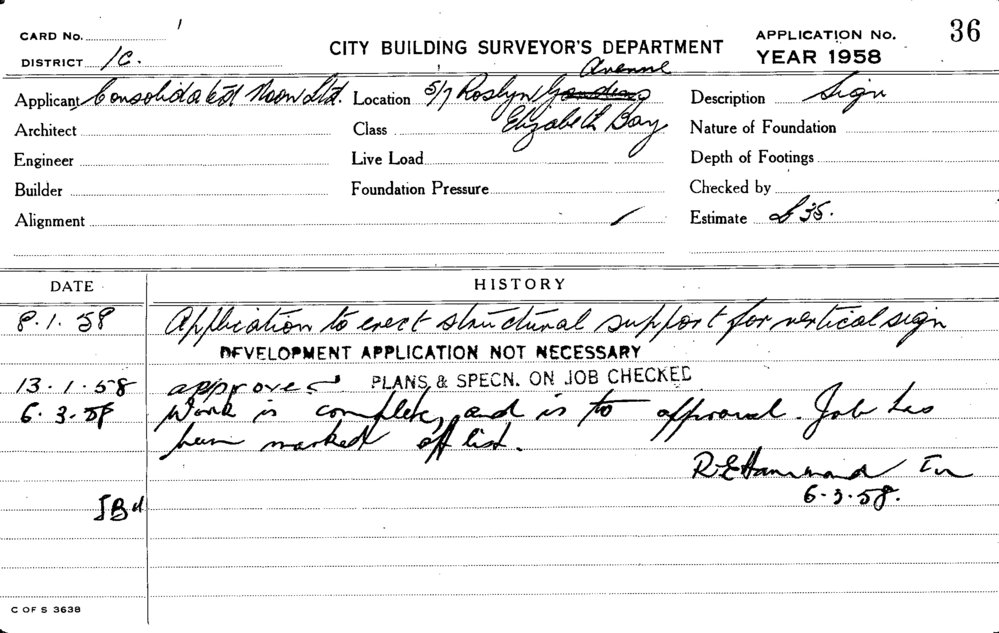 CARD No.
DISTRICT 1C.
CITY BUILDING SURVEYOR'S DEPARTMENT
APPLICATION No. 36
YEAR 1958
Applicant Consolidated Neon Ltd. Location 5/7 Roslyn Gardens Avenue Description Sign
Architect Class Elizabeth Bay Nature of Foundation
Engineer Live Load Depth of Footings
Builder Foundation Pressure Checked by
Alignment Estimate £35.
DATE HISTORY
8.1.58 Application to erect structural support for vertical sign
DEVELOPMENT APPLICATION NOT NECESSARY
13.1.58 approved PLANS & SPECN. ON JOB CHECKED
6.3.58 Work is complete, and is to approval. Job has
been marked off list.
R E Hammond
6.3.58.
C OF S 3638